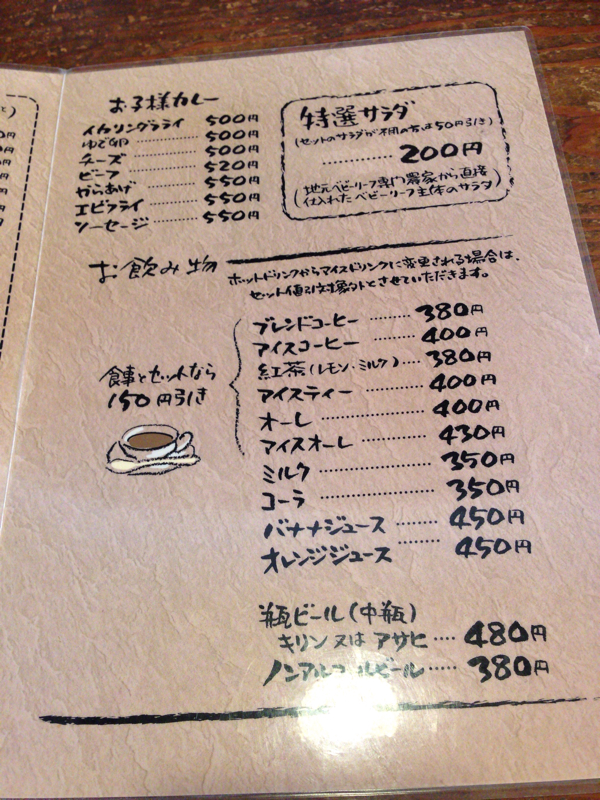 お子様カレー
イカリングフライ 500円
ゆで卵 ………… 500円
チーズ ………… 500円
ビーフ ………… 520円
からあげ ………… 550円
エビフライ ……… 550円
ソーセージ ……… 550円
特選サラダ
(セットのサラダが不用の方は50円引き)
………… 200円
(地元ベビーリーフ専門農家から直接
仕入れたベビーリーフ主体のサラダ)
お飲み物
ホットドリンクからアイスドリンクに変更される場合は、
セット値引対象外とさせていただきます。
食事とセットなら
150円引き
ブレンドコーヒー ……… 380円
アイスコーヒー ………… 400円
紅茶(レモン・ミルク) … 380円
アイスティー ………… 400円
オーレ ………… 400円
アイスオーレ ………… 430円
ミルク ………… 350円
コーラ ………… 350円
バナナジュース ……… 450円
オレンジジュース ……… 450円
瓶ビール(中瓶)
キリン又はアサヒ …… 480円
ノンアルコールビール …… 380円